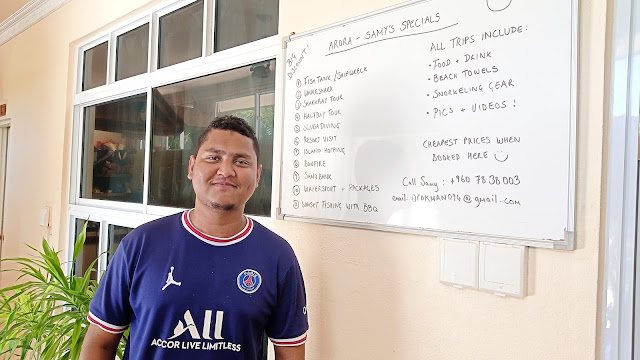 BIG DISCOUNT!
ARORA - SAMY'S SPECIALS
① FISH TANK / SHIPWRECK
② WHALESHARK
③ SHARKRAY TOUR
④ HALFDAY TOUR
⑤ SCUBA DIVING
⑥ RESORT VISIT
⑦ ISLAND HOPPING
⑧ BONFIRE
⑨ SANDBANK
⑩ WATERSPORT + PACKAGES
⑪ SUNSET FISHING WITH BBQ
ALL TRIPS INCLUDE:
• FOOD + DRINK
• BEACH TOWELS
• SNORKELING GEAR
• PICS + VIDEOS !
CHEAPEST PRICES WHEN
BOOKED HERE
Call Samy : +960 78 38 003
@gmail.com
email:
PARIS
ALL
ACCOR LIVE LIMITLESS